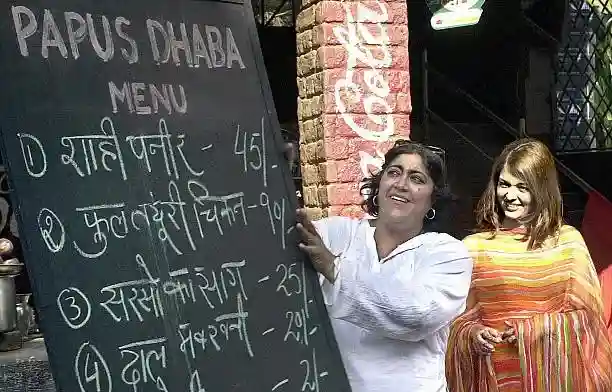 PAPUS DHABA
MENU
① शाही पनीर - 45/-
② फुल तन्दूरी चिकन - 90/-
③ सरसो का साग - 25/-
④ दाल मक्खनी - 20/-